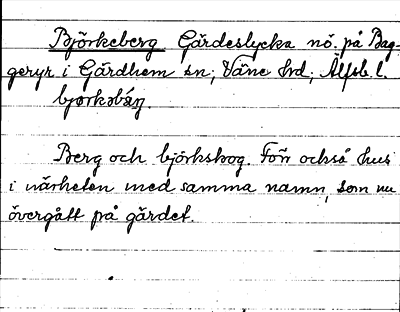 Björkeberg Gärdeslycka nö. på Bag-
geryr i Gärdhem sn; Väne hd; Älfsb. l.
bjǫrkəbä́rj
Berg och björkskog. Förr också hus
i närheten med samma namn, som nu
övergått på gärdet.